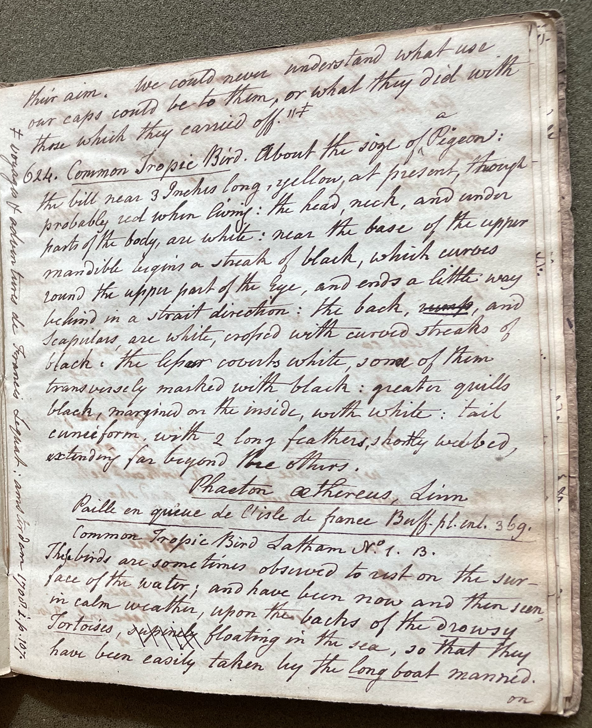 their aim. We could never understand what use
our caps could be to them, or what they did with
those which they carried off."‡
624. Common Tropic Bird. About the size of a Pigeon:
the bill near 3 Inches long, yellow, at present, though
probably red when living: the head, neck, and under
parts of the body, are white: near the base of the upper
mandible begins a streak of black, which curves
round the upper part of the Eye, and ends a little way
behind in a strait direction: the back, rump, and
Scapulars, are white, crossed with curved streaks of
black: the lesser coverts white, some of them
transversely marked with black: greater quills
black, margined on the inside, with white: tail
cuneiform, with 2 long feathers, shortly webbed,
extending far beyond the others.
Phaeton æthereus, Linn
Paille en queue de l'isle de france Buff. pl. enl. 369.
Common Tropic Bird Latham No. 1. 13.
The birds are sometimes observed to rest on the sur-
face of the water; and have been now and then seen,
in calm weather, upon the backs of the drowsy
Tortoises, supinely floating in the sea, so that they
have been easily taken by the long boat manned.
on
‡ voyages & adventures de Francis Leguat: amsterdam 1708. i. p. 107.